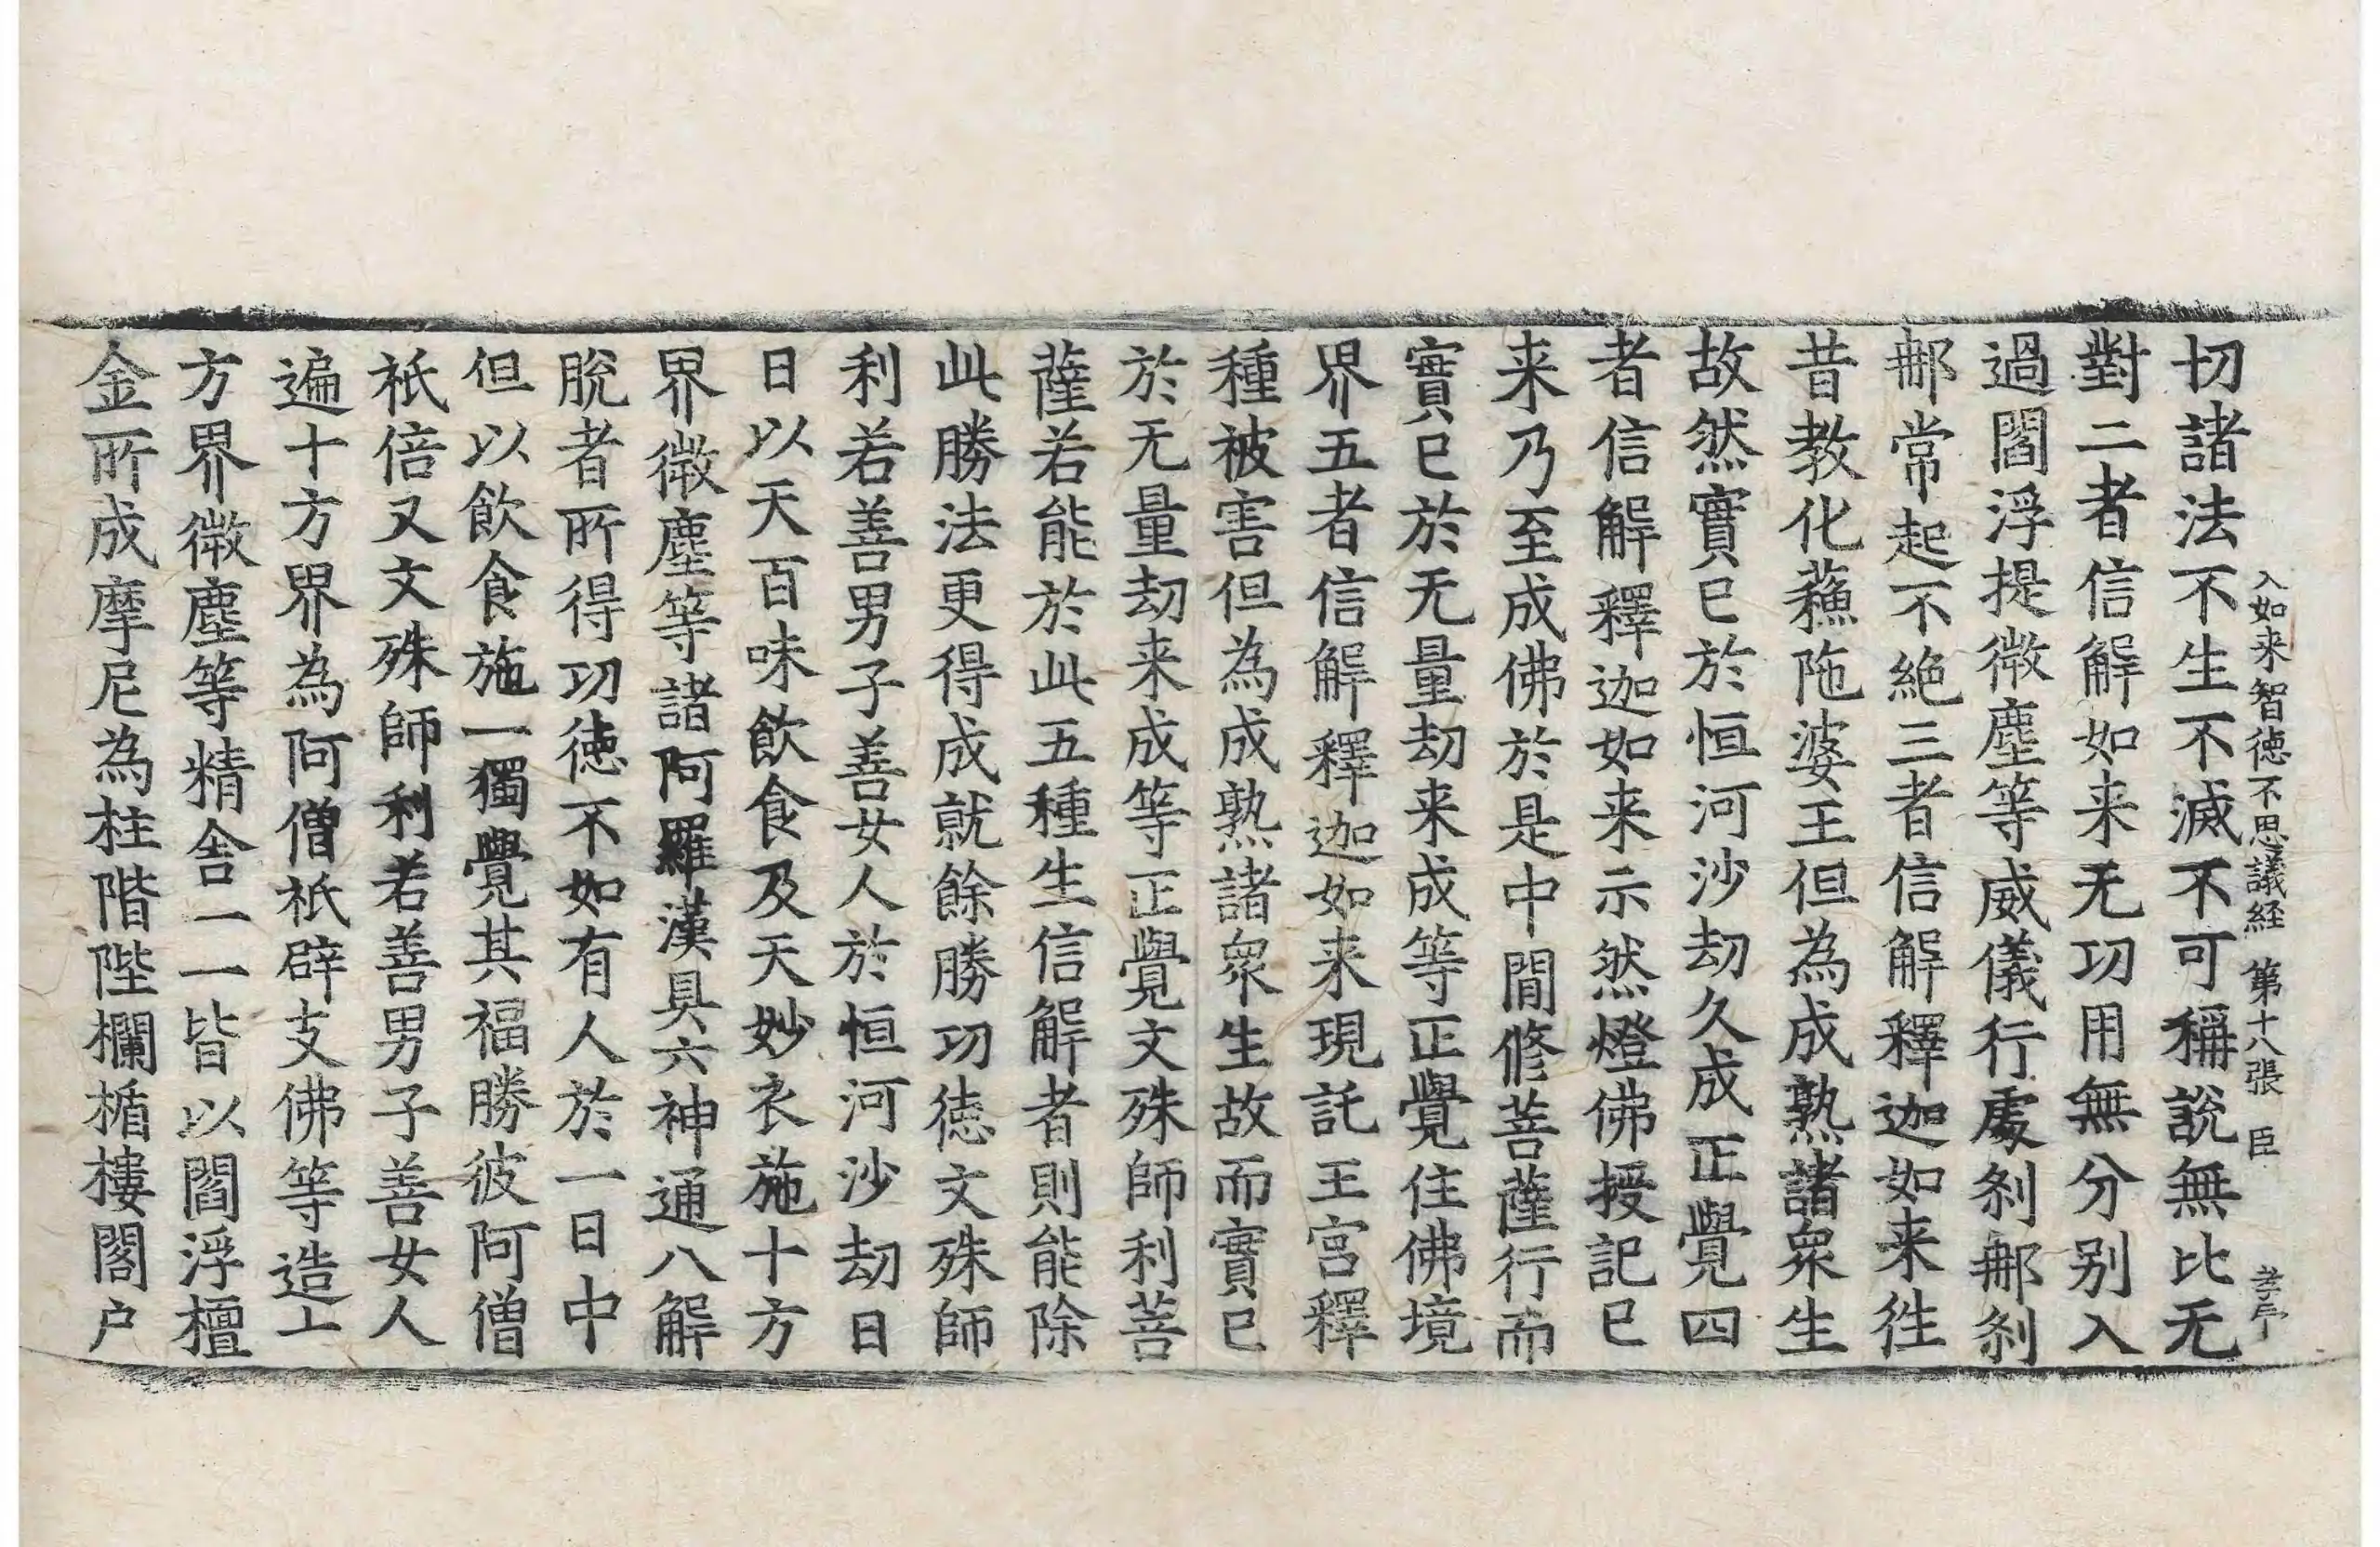 入如来智徳不思議経 第十八張 臣
切諸法不生不滅不可稱說無比无
對二者信解如来无功用無分别入
過閻浮提微塵等威儀行處刹那刹
那常起不絶三者信解釋迦如来徃
昔教化蘓陁婆王但為成熟諸衆生
故然實已於恒河沙劫久成正覺四
者信解釋迦如来示然燈佛授記已
来乃至成佛於是中間修菩薩行而
實已於无量劫来成等正覺住佛境
界五者信解釋迦如来現託王宫釋
種被害但為成熟諸衆生故而實已
於无量劫来成等正覺文殊師利菩
薩若能於此五種生信解者則能除
此勝法更得成就餘勝功徳文殊師
利若善男子善女人於恒河沙劫日
日以天百味飲食及天妙衣施十方
界微塵等諸阿羅漢具六神通八解
脫者所得功徳不如有人於一日中
但以飲食施一獨覺其福勝彼阿僧
祇倍又文殊師利若善男子善女人
遍十方界為阿僧祇辟支佛等造上
方界微塵等精舍一一皆以閻浮檀
金所成摩尼為柱階陛欄楯樓閣户